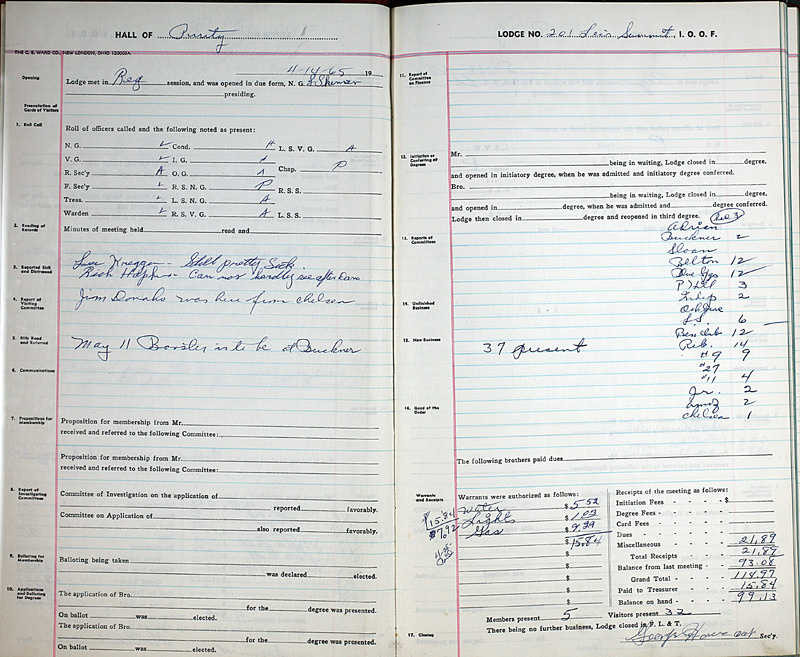 HALL OF Purity
THE C. E. WARD CO., NEW LONDON, OHIO
4-14-65 19
Opening
Lodge met in Reg session, and was opened in due form, N. G.
presiding.
Presentation of Cards of Visitors
1. Roll Call
Roll of officers called and the following noted as present:
N. G. Cond. A L. S. V. G. A
V. G. I. G. Chap. P
R. Sec'y A O. G.
F. Sec'y R. S. N. G. P R. S. S.
Treas. L. S. N. G. A
Warden R. S. V. G. A L. S. S.
2. Reading of Records
Minutes of meeting held read and
3. Reported Sick and Distressed
Still pretty Sick
Can not hardly see after Exam
4. Report of Visiting Committee
Jim Donaho was here from Chelsea
5. Bills Read and Referred
May 11 Booster is to be at Buckner
6. Communications
7. Propositions for Membership
Proposition for membership from Mr.
received and referred to the following Committee:
Proposition for membership from Mr.
received and referred to the following Committee:
8. Report of Investigating Committee
Committee of Investigation on the application of
reported favorably.
Committee on Application of
also reported favorably.
9. Balloting for Membership
Balloting being taken
was declared elected.
10. Applications and Balloting for Degrees
The application of Bro.
for the degree was presented.
On ballot was elected.
The application of Bro.
for the degree was presented.
On ballot was elected.
LODGE NO. 201 Lee's Summit, I. O. O. F.
11. Report of Committee on Finance
12. Initiation or Conferring of Degrees
Mr.
being in waiting, Lodge closed in degree,
and opened in initiatory degree, when he was admitted and initiatory degree conferred.
Bro.
being in waiting, Lodge closed in degree,
and opened in degree, when he was admitted and degree conferred.
Lodge then closed in degree and reopened in third degree.
13. Reports of Committees
Adrian
Buckner 2
Sloan
Belton 12
Blue Spgs 12
P Hill 3
Indep 2
L.S. 6
14. Unfinished Business
Reb. 14
15. New Business
37 present
#9 9
#27
#11 4
Jr. 2
2
Chelsea 1
16. Good of the Order
The following brothers paid dues
Warrants and Receipts
Warrants were authorized as follows:
Water $ 5.52
Lights $ 1.03
Gas $ 9.29
$ 15.84
$15.84
$7.92
$
$
$
$
$
Receipts of the meeting as follows:
Initiation Fees - - - - $
Degree Fees - - - -
Card Fees - - - -
Dues - - - -
Miscellaneous - - - - 21.89
Total Receipts 21.89
Balance from last meeting - 93.08
Grand Total - - - 114.97
Paid to Treasurer - - 15.84
Balance on hand - - - 99.13
Members present 5 Visitors present 32
17. Closing
There being no further business, Lodge closed in F. L. & T.
Sec'y.